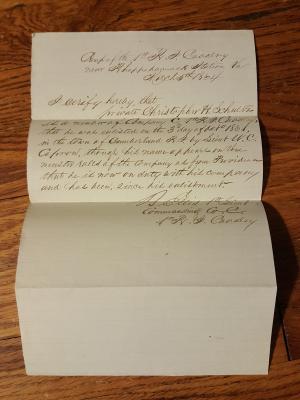 Camp of the 1st R I Cavalry
near Rappahannock Station Va
March 4th 1864
I certify hereby that
private Christopher H Schultze
is a member of Company C 1st R I Cavalry
that he was enlisted on the 3 day of Oct 1861,
in the Town of Cumberland R I by Lieut W. C.
though his name appears on the
muster rolls of the company as from Providence
that he is now on duty with his company
and has been, since his enlistment
1st Lieut
Commanding Co. C.
1st R. I. Cavalry